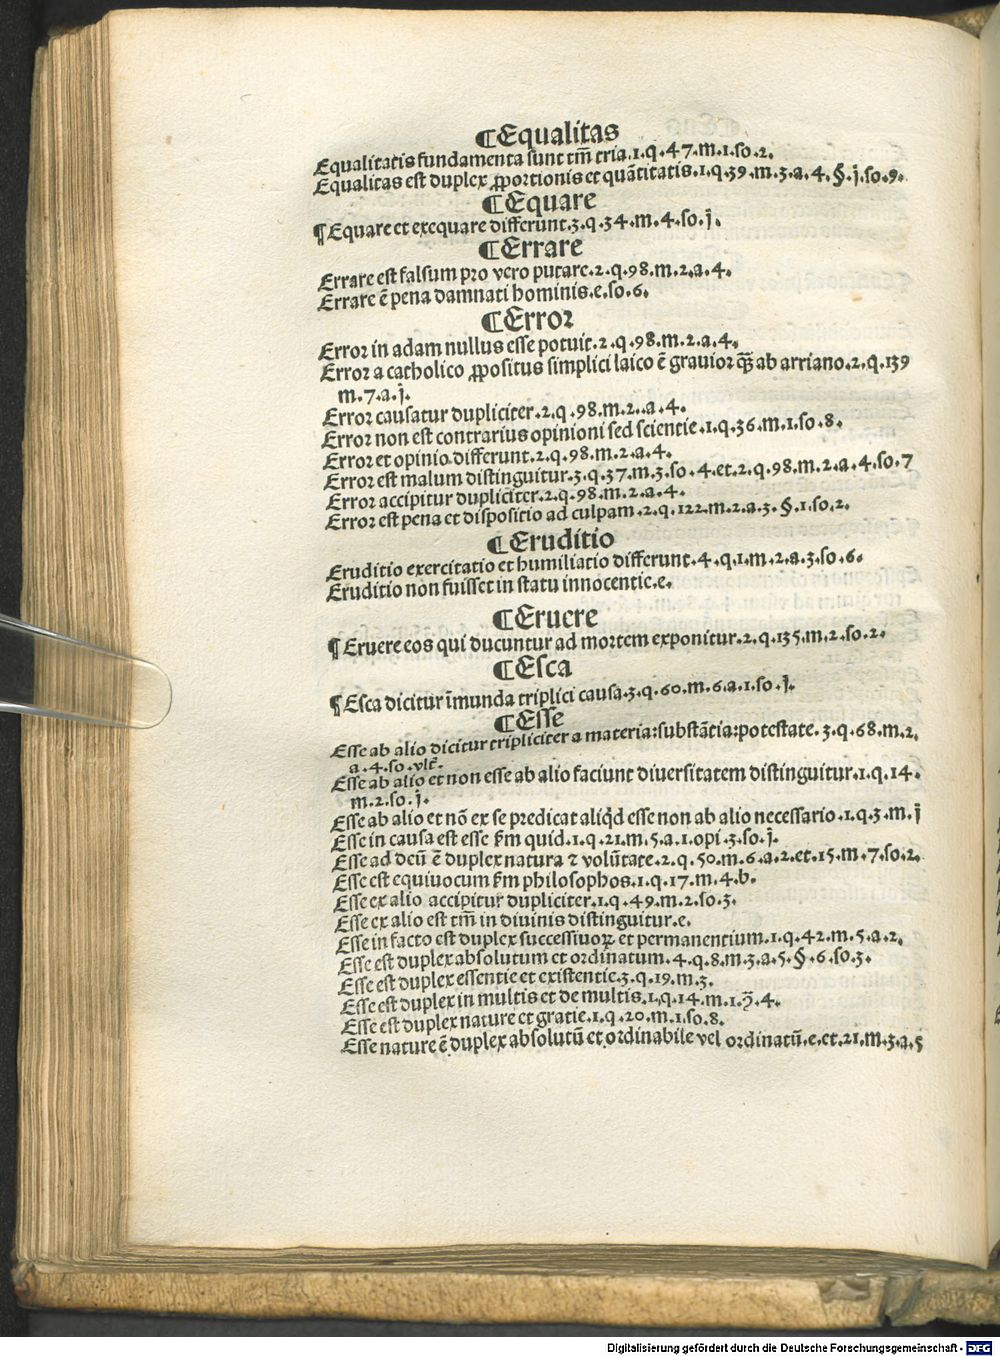 ¶Equalitas
Equalitatis fundamenta sunt tm̄ tria.1.q.47.m.1.so.2.
Equalitas est duplex ꝓportionis et quātitatis.1.q.39.m.3.a.4.§.j.so.9.
¶Equare
¶Equare et exequare differunt.3.q.34.m.4.so.j.
¶Errare
Errare est falsum pro vero putare.2.q.98.m.2.a.4.
Errare ē pena damnati hominis.e.so.6.
¶Error
Error in adam nullus esse potuit.2.q.98.m.2.a.4.
Error a catholico ꝓpositus simplici laico ē grauior qꝫ̄ ab arriano.2.q.139
m.7.a.j.
Error causatur dupliciter.2.q.98.m.2.a.4.
Error non est contrarius opinioni sed scientie.1.q.36.m.1.so.8.
Error et opinio differunt.2.q.98.m.2.a.4.
Error est malum distinguitur.3.q.37.m.3.so.4.et.2.q.98.m.2.a.4.so.7
Error accipitur dupliciter.2.q.98.m.2.a.4.
Error est pena et dispositio ad culpam.2.q.122.m.2.a.3.§.1.so.2.
¶Eruditio
Eruditio exercitatio et humiliatio differunt.4.q.1.m.2.a.3.so.6.
Eruditio non fuisset in statu innocentie.e.
¶Eruere
¶Eruere eos qui ducuntur ad mortem exponitur.2.q.135.m.2.so.2.
¶Esca
¶Esca dicitur īmunda triplici causa.3.q.60.m.6.a.1.so.j.
¶Esse
Esse ab alio dicitur tripliciter a materia:substātia:potestate.3.q.68.m.2.
a.4.so.vlt̄.
Esse ab alio et non esse ab alio faciunt diuersitatem distinguitur.1.q.14.
m.2.so.j.
Esse ab alio et nō ex se predicat aliqd̄ esse non ab alio necessario.1.q.3.m.j
Esse in causa est esse ẜm quid.1.q.21.m.5.a.1.opi.3.so.j.
Esse ad deū ē duplex natura ⁊ volūtate.2.q.50.m.6.a.2.et.15.m.7.so.2.
Esse est equiuocum ẜm philosophos.1.q.17.m.4.b.
Esse ex alio accipitur dupliciter.1.q.49.m.2.so.3.
Esse ex alio est tm̄ in diuinis distinguitur.e.
Esse in facto est duplex successiuoꝝ et permanentium.1.q.42.m.5.a.2.
Esse est duplex absolutum et ordinatum.4.q.8.m.3.a.5.§.6.so.3.
Esse est duplex essentie et existentie.3.q.19.m.3.
Esse est duplex in multis et de multis.1.q.14.m.1.ꝙ̄.4.
Esse est duplex nature et gratie.1.q.20.m.1.so.8.
Esse nature ē duplex absolutū et ordinabile vel ordinatū.e.et.21.m.3.a.5
Digitalisierung gefördert durch die Deutsche Forschungsgemeinschaft - DFG